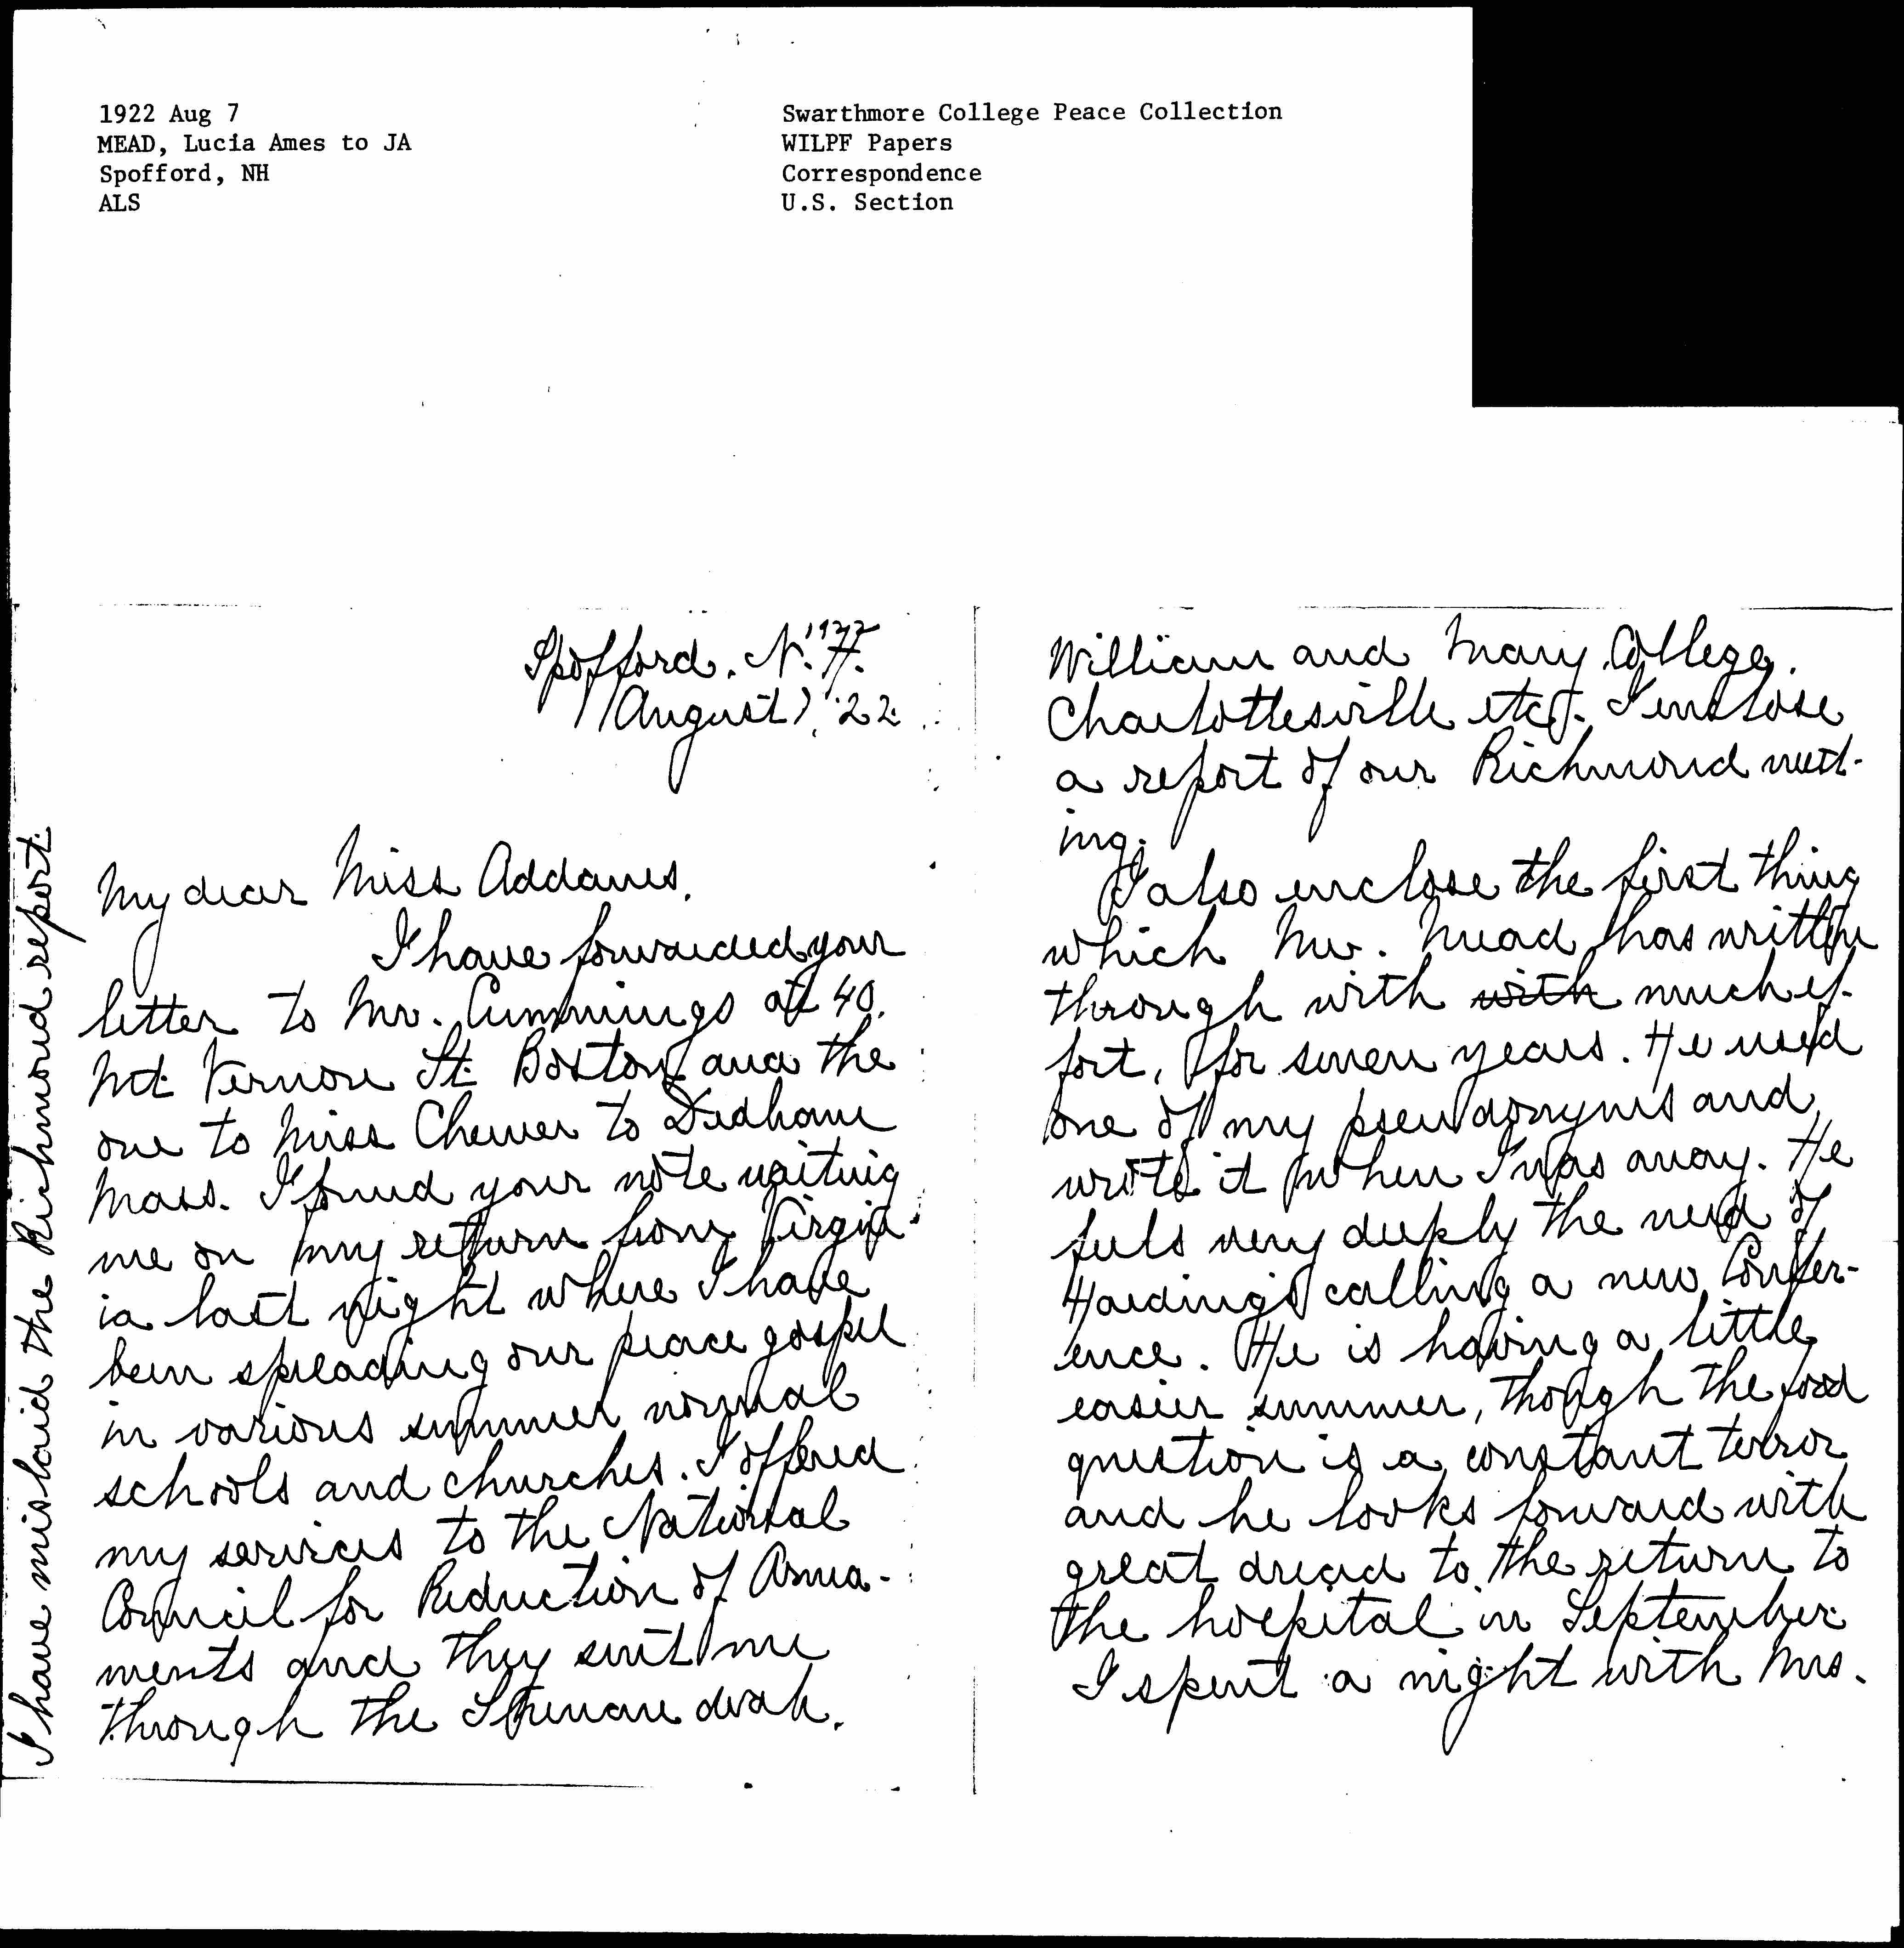 1922 Aug 7
MEAD, Lucia Ames to JA
Spofford, NH
ALS
Swarthmore College Peace Collection
WILPF Papers
Correspondence
U.S. Section
1922
Spofford. N.H.
August 7, '22
My dear Miss Addams,
I have forwarded your
letter to Mr. Cummings at 40.
Mt. Vernon St. Boston and the
one to Miss Cheever to Dedham
Mass. I found your note waiting
me on my return from Virgin-
ia last night where I have
been spreading our peace gospel
in various summer normal
schools and churches. I offered
my services to the National
Council for Reduction of Arma-
ments and they sent me
through the Shenandoah,
I have mislaid the Richmond report.
William and Mary College,
Charlottesville etc. I enclose
a report of our Richmond meet-
ing.
I also enclose the first thing
which Mr. Mead has written
through with with much ef-
fort, for seven years. He used
one of my pseudonyms and
wrote it when I was away. He
feels very deeply the need of
Harding's calling a new Confer-
ence. He is having a little
easier summer, though the food
question is a constant terror
and he looks forward with
great dread to the return to
the hospital in September
I spent a night with Mrs.